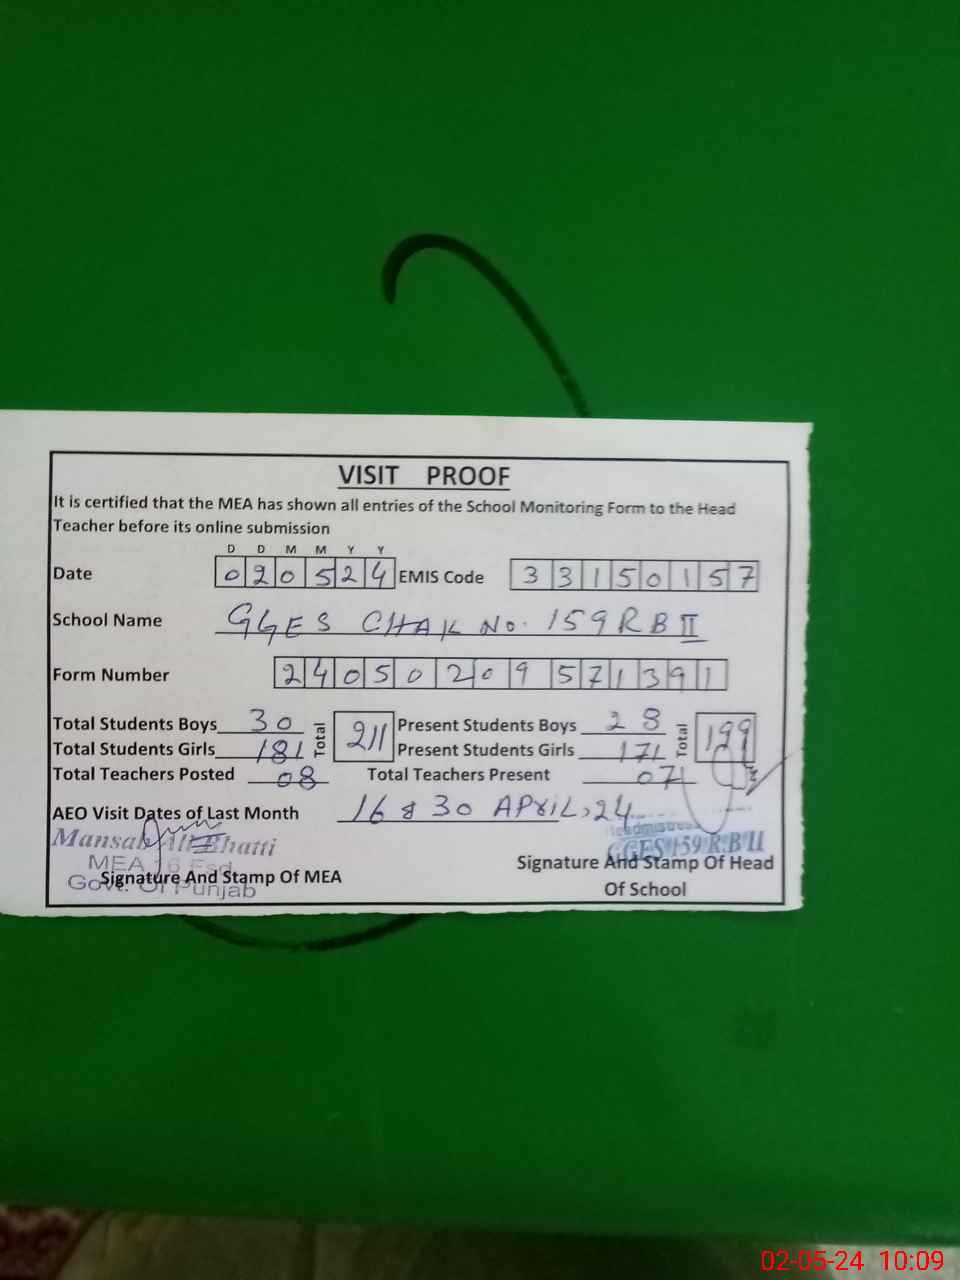 VISIT PROOF
It is certified that the MEA has shown all entries of the School Monitoring Form to the Head
Teacher before its online submission
D D M M Y Y
Date 020524 EMIS Code 33150157
School Name GGES CHAK No. 159 RB II
Form Number 24050209571391
Total Students Boys 30 Total 211 Present Students Boys 28 Total 199
Total Students Girls 181 Present Students Girls 171
Total Teachers Posted 08 Total Teachers Present 07
AEO Visit Dates of Last Month 16 & 30 APRIL, 24
Mansab Ali Bhatti
MEA 16 Fsd
Govt. Of Punjab
Signature And Stamp Of MEA
Headmistress
GGES 159 R.B II
Signature And Stamp Of Head
Of School
02-05-24 10:09